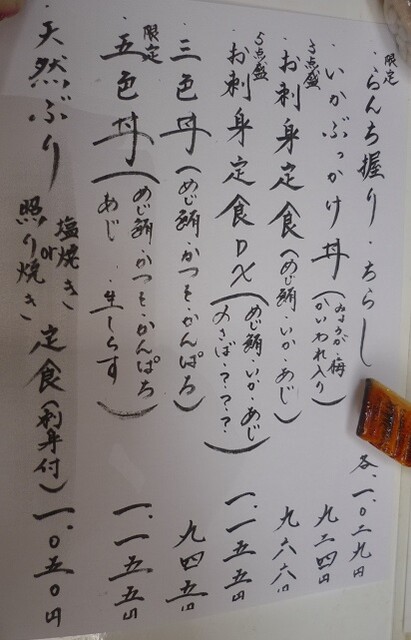 限定 らんち握り・ちらし 各、一、〇二九円
・いかぶっかけ丼(みょうが・梅 かいわれ入り) 九二四円
3点盛 ・お刺身定食(めじ鮪・いか・あじ) 九六六円
5点盛 お刺身定食DX(めじ鮪・いか・あじ 〆さば・?・?・?) 一、一五五円
・三色丼(めじ鮪・かつを・かんぱち) 九四五円
限定 五色丼(めじ鮪・かつを・かんぱち あじ・生しらす) 一、一五五円
・天然ぶり 塩焼き or 照り焼き 定食(刺身付) 一、〇五〇円